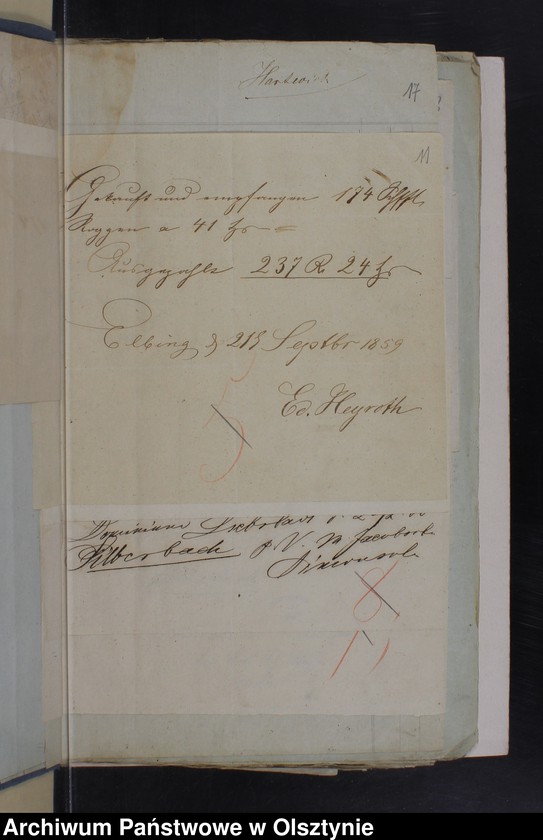 17
11
Gekauft und empfangen 174 Schffl
Roggen a 41 Sgr
Ausgezahlt 237 R 24 Sgr
Elbing d 21t Septbr 1859
Ed. Heyroth
5
Dominium
Silberbach p V. M. Jacobsohn
8
Archiwum Państwowe w Olsztynie